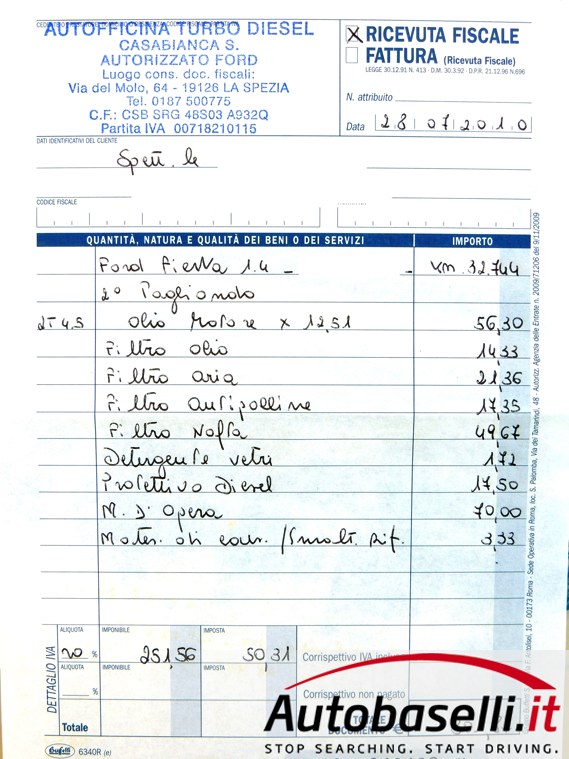 AUTOFFICINA TURBO DIESEL
CASABIANCA S.
AUTORIZZATO FORD
Luogo cons. doc. fiscali:
Via del Molo, 64 - 19126 LA SPEZIA
Tel. 0187 500775
C.F.: CSB SRG 48S03 A932Q
Partita IVA 00718210115
X RICEVUTA FISCALE
FATTURA (Ricevuta Fiscale)
LEGGE 30.12.91 N. 413 - D.M. 30.3.92 - D.P.R. 21.12.96 N.696
N. attribuito
Data 28 07 2010
DATI IDENTIFICATIVI DEL CLIENTE
Spett. le
CODICE FISCALE
QUANTITÀ, NATURA E QUALITÀ DEI BENI O DEI SERVIZI IMPORTO
Ford Fiesta 1.4 - - Km. 32.744
2° Tagliando
LT 4,5 Olio Motore x 12,51 56,30
Filtro olio 14,33
Filtro aria 21,36
Filtro Antipolline 17,35
Filtro Nafta 49,67
Detergente vetri 1,72
Protettivo Diesel 17,50
M. D'Opera 70,00
Mater. di cons. /Smalt. Rif. 3,33
DETTAGLIO IVA
ALIQUOTA IMPONIBILE IMPOSTA
20 % 251,56 50,31 Corrispettivo IVA
ALIQUOTA IMPONIBILE IMPOSTA
% Corrispettivo non pagato
Totale TOTALE DOCUMENTO €
Buffetti 6340R (e)
Autobaselli.it
STOP SEARCHING. START DRIVING.